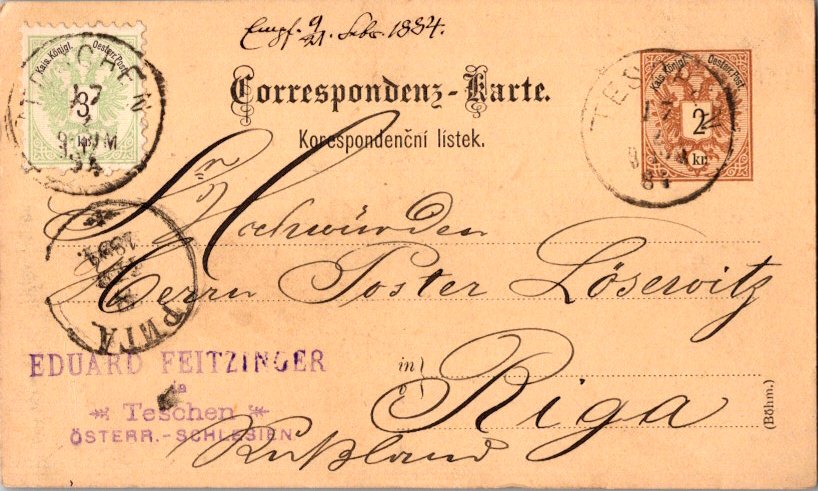 Empf. 9/21. Febr. 1884.
Kais. Königl. Oesterr. Post
3
TESCHEN
17
84
Correspondenz-Karte.
Korespondenční lístek.
Kais. Königl. Oesterr. Post
2
kr.
TES
Sr Hochwürden
Herrn Paster Löserwitz
in
v
Riga
Rußland
(Böhm.)
РИГА
1884.
EDUARD FEITZINGER
in
Teschen
ÖSTERR.-SCHLESIEN